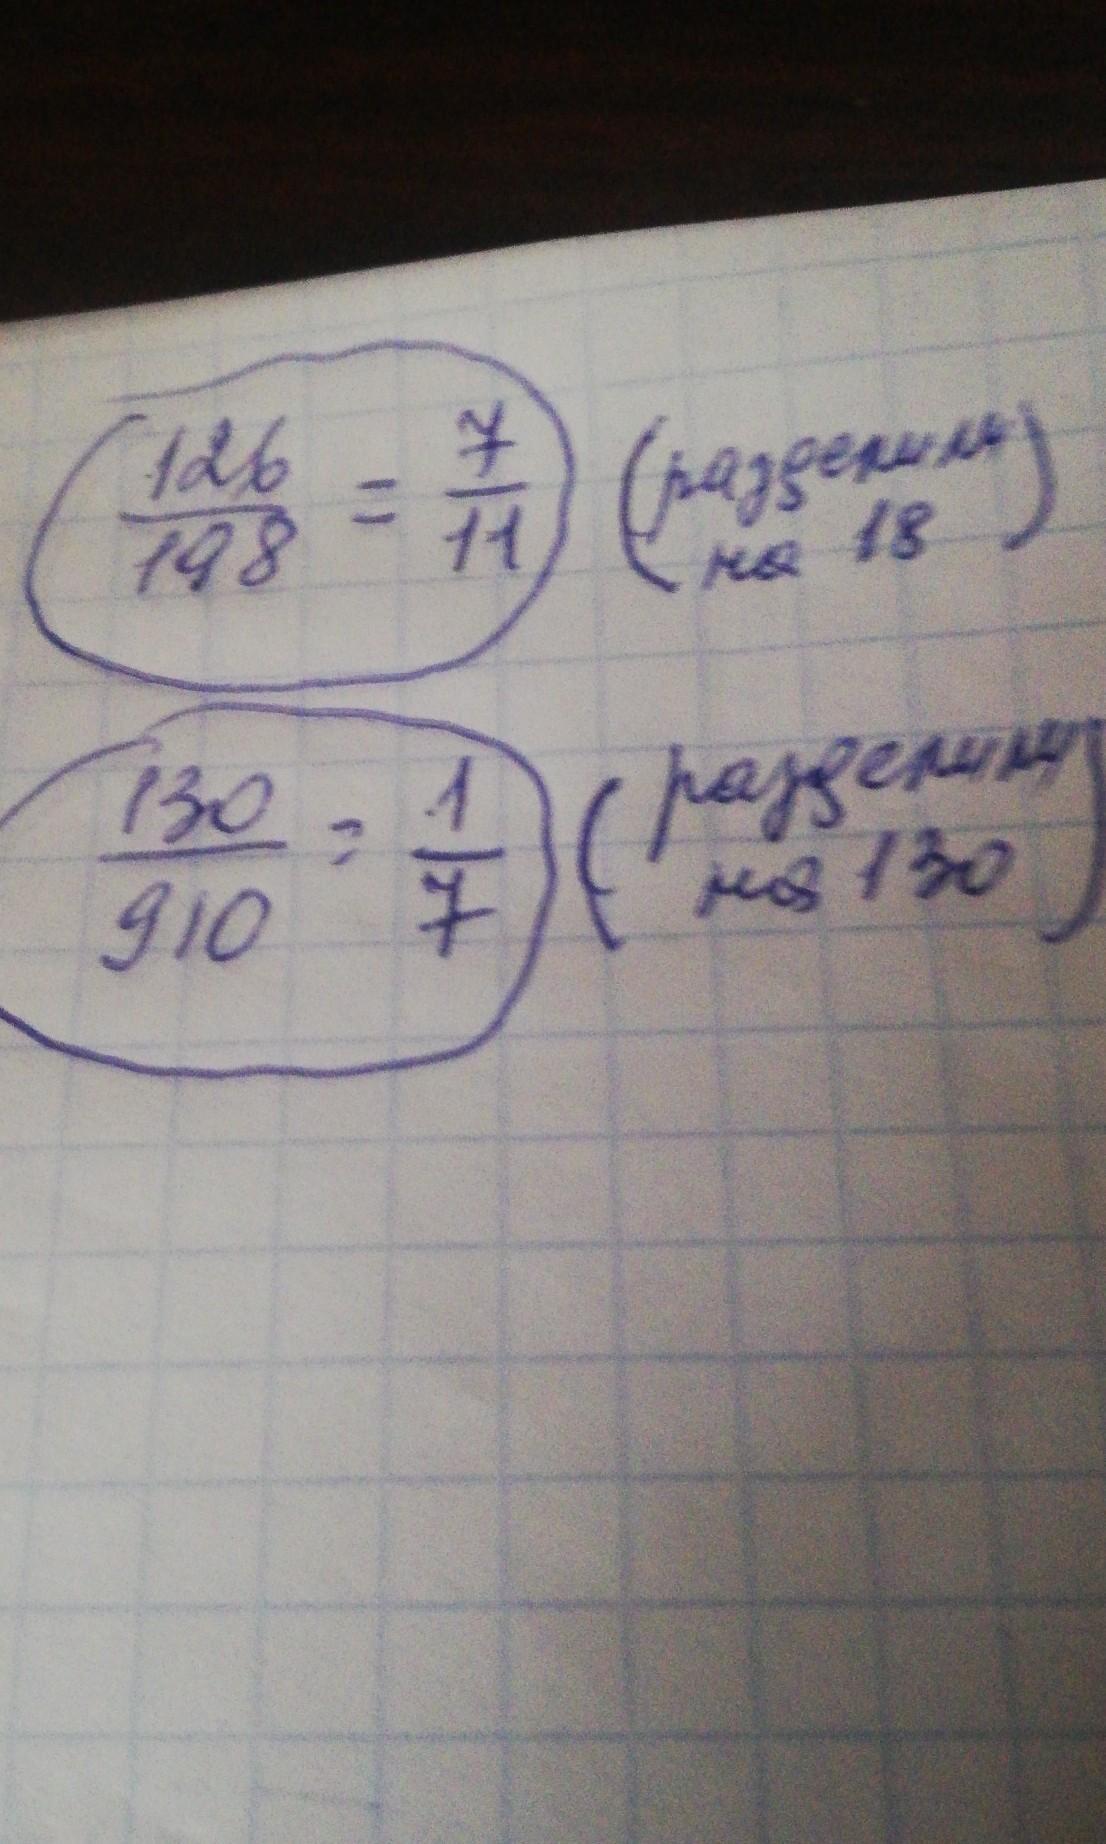 126/198 = 7/11 (разделили
на 18)
130/910 = 1/7 (разделили
на 130)